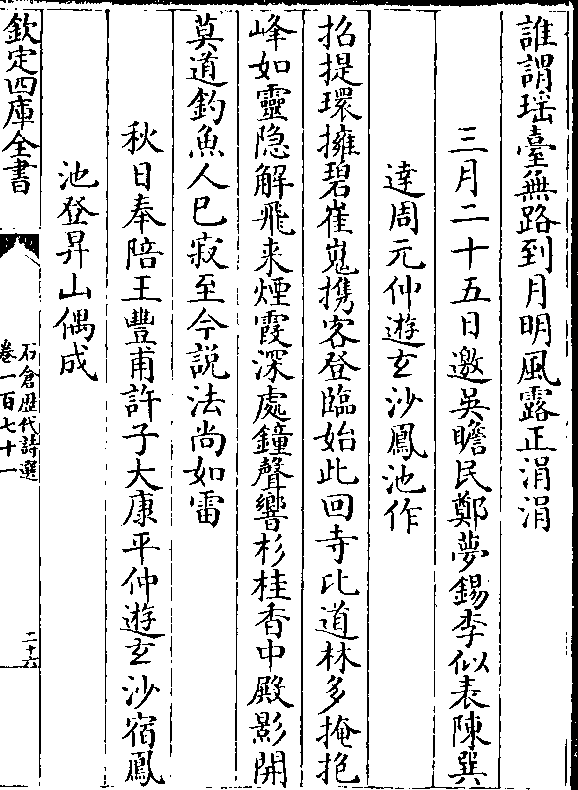 誰謂瑶臺無路到月明風露正涓涓
三月二十五日邀吳瞻民鄭夢錫李似表陳巽
達周元仲遊玄沙鳳池作
招提環擁碧崔嵬携客登臨始此回寺比道林多掩抱
峰如靈隐解飛来煙霞深處鐘聲響杉桂香中殿影開
莫道釣魚人已寂至今説法尚如雷
秋日奉陪王豐甫許子大康平仲遊玄沙宿鳳
池登昇山偶成
欽定四庫全書
石倉歴代詩選
卷一百七十一
二十六